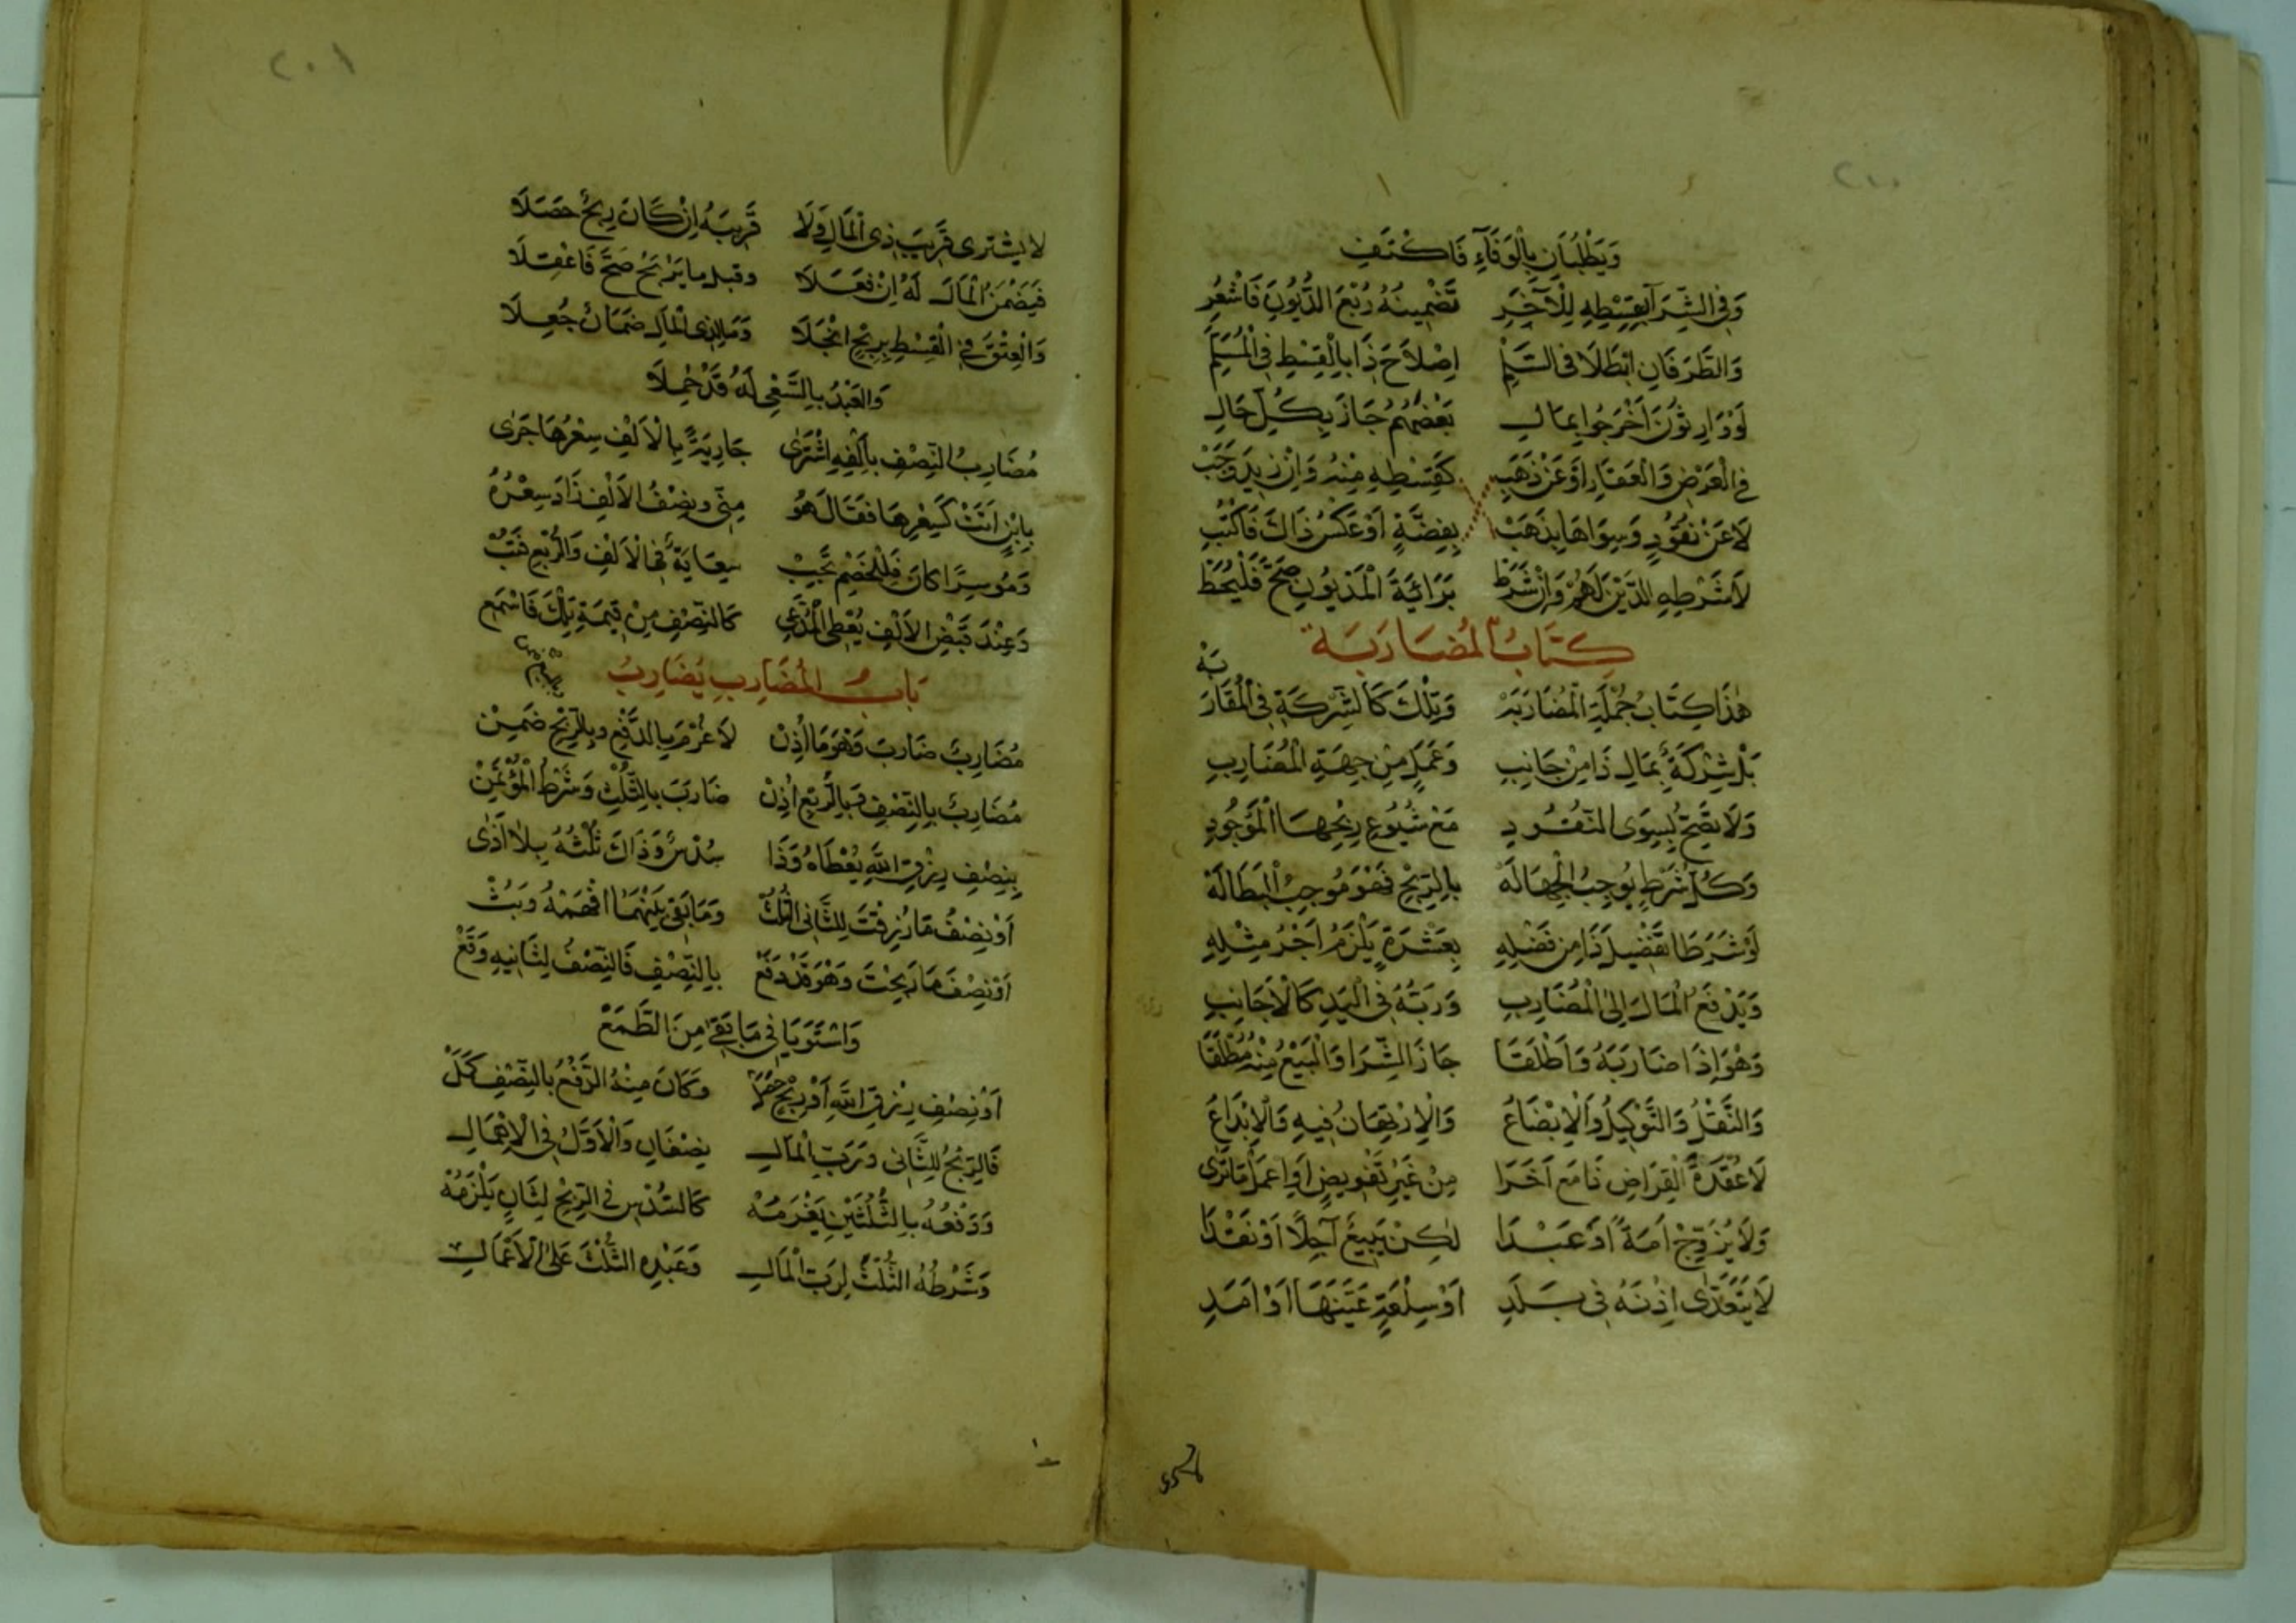 ٢٠٠
وَيَطْلُبَانِ بِالْوَفَآءِ فَاكْتَفِ
وَفِى الشِّرَآ بِقِسْطِهِ لِلْآخَرِ تَضْمِينُهُ رُبْعَ الدُّيُونِ فَاشْعُرِ
وَالطَّرَفَانِ ابْطَلَا فِى السَّلَمِ اِصْلَاحَ ذَا بِالْقِسْطِ فِى الْمُسَلَّمِ
لَوْ وَارِثُونَ اَخْرَجُوا بِمَالِ بَعْضَهُمُ جَازَ بِكُلِّ حَالِ
فِى الْعَرْضِ وَالْعَقَارِ اَوْ عَنْ ذَهَبِ كَقِسْطِهِ مِنْهُ وَاِنْ زِيدَ وَجَبْ
لَا عَنْ نُقُودٍ وَسِوَاهَا بِذَهَبْ بِفِضَّةٍ اَوْ عَكْسُ ذَاكَ فَاكْتُبِ
لَا شَرْطِهِ الدَّيْنَ لَهُمْ وَاِنْ شَرَطْ بَرَائَةَ الْمَدْيُونِ صَحَّ فَلْيُحَطْ
كِتَابُ الْمُضَارَبَة
هٰذَا كِتَابُ جُمْلَةِ الْمُضَارَبَهْ وَتِلْكَ كَالشِّرْكَةِ فِى الْمُقَارَبَهْ
بَلْ شِرْكَةٌ بِمَالِ ذَا مِنْ جَانِبِ وَعَمَلٍ مِنْ جِهَةِ الْمُضَارِبِ
وَلَا تَصِحُّ بِسِوَى النُّقُودِ مَعْ شُيُوعِ رِبْحِهَا الْمَوْجُودِ
وَكُلُّ شَرْطٍ يُوجِبُ الْجَهَالَهْ بِالرِّبْحِ فَهْوَ مُوجِبُ الْبَطَالَهْ
لَوْ شَرَطَا تَفْضِيلَ ذَا مِنْ فَضْلِهِ بِعَشْرَةٍ يَلْزَمُ اَجْرُ مِثْلِهِ
وَيَدْفَعُ الْمَالَ اِلَى الْمُضَارِبِ وَرَبُّهُ فِى الْيَدِ كَالْاَجَانِبِ
وَهْوَ اِذَا ضَارَبَهُ وَاَطْلَقَا جَازَ الشِّرَا وَالْبَيْعُ مِنْهُ مُطْلَقَا
وَالنَّقْلُ وَالتَّوْكِيلُ وَالْاِبْضَاعُ وَالْاِرْتِهَانُ فِيهِ وَالْاِيْدَاعُ
لَا عُقْدَةُ الْقِرَاضِ ذَا مَعْ آخَرَا مِنْ غَيْرِ تَفْوِيضٍ اَوِ اعْمَلْ مَا تَرَى
وَلَا يُزَوِّجْ اَمَةً اَوْ عَبْدَا لٰكِنْ يَبِيعُ آجِلًا اَوْ نَقْدَا
لَا يَتَعَدَّى اِذْنَهُ فِى بَلَدِ اَوْ سِلْعَةٍ عَيَّنَهَا اَوْ اَمَدِ
٢٠١
لَا يَشْتَرِى قَرِيبَ ذِى الْمَالِ وَلَا قَرِيبَهُ اِنْ كَانَ رِبْحٌ حَصَلَا
فَيَضْمَنُ الْمَالَ لَهُ اِنْ فَعَلَا وَقَبْلَ مَا يَرْبَحُ صَحَّ فَاعْقِلَا
وَالْعِتْقُ فِى الْقِسْطِ بِرِبْحٍ انْجَلَا وَمَا لِذِى الْمَالِ ضَمَانٌ جُعِلَا
وَالْعَبْدُ بِالسَّعْىِ لَهُ قَدْ حُمِلَا
مُضَارِبُ النِّصْفِ بِاَلْفِهِ اشْتَرَى جَارِيَةً بِالْاَلْفِ سِعْرُهَا جَرَى
بِابْنٍ اَتَتْ كَسِعْرِهَا فَقَالَ هُو مِنِّى وَنِصْفُ الْاَلْفِ زَادَ سِعْرُهُ
وَمُوسِرًا كَانَ فَلِلْخَصْمِ تَجِبْ سِعَايَةٌ فِى الْاَلْفِ وَالرُّبْعِ
وَعِنْدَ قَبْضِ الْاَلْفِ يُعْطِى الْمُدَّعِى كَالنِّصْفِ مِنْ قِيمَةِ تِلْكَ فَاسْمَعِ
بَابُ الْمُضَارِبِ يُضَارِبُ
مُضَارِبٌ ضَارَبَ وَهْوَ مَا اُذِنْ لَا غُرْمَ بِالدَّفْعِ وَبِالرِّبْحِ ضَمِنْ
مُضَارِبٌ بِالنِّصْفِ بِالرُّبْعِ اُذِنْ ضَارَبَ بِالثُّلْثِ وَشَرْطُ الْمُؤْتَمِنْ
بِنِصْفِ رِزْقِ اللّٰهِ يُعْطَاهُ وَذَا سُدْسٌ وَذَاكَ ثُلْثُهُ بِلَا اَذَى
اَوْ نِصْفُ مَا رُزِقْتَ لِلثَّانِى الثُّلُثْ وَمَا بَقِىَ بَيْنَهُمَا افْهَمْهُ وَبُثْ
اَوْ نِصْفَ مَا رَبِحْتَ وَهْوَ قَدْ دَفَعْ بِالنِّصْفِ فَالنِّصْفُ لِثَانِيهِ وَقَعْ
وَاسْتَوَيَا فِى مَا بَقِى مِنَ الطَّمَعْ
اَوْ نِصْفِ رِزْقِ اللّٰهِ اَوْ رِبْحٍ وَكَانَ مِنْهُ الدَّفْعُ بِالنِّصْفِ كَمَلْ
فَالرِّبْحُ لِلثَّانِى وَرَبِّ الْمَالِ نِصْفَانِ وَالْاَوَّلُ فِى الْاِهْمَالِ
وَدَفْعُهُ بِالثُّلْثَيْنِ يَغْرَمُهْ كَالسُّدْسِ فِى الرِّبْحِ لِثَانٍ يَلْزَمُهْ
وَشَرْطُهُ الثُّلْثَ لِرَبِّ الْمَالِ وَعَبْدِهِ الثُّلْثَ عَلَى الْاَعْمَالِ